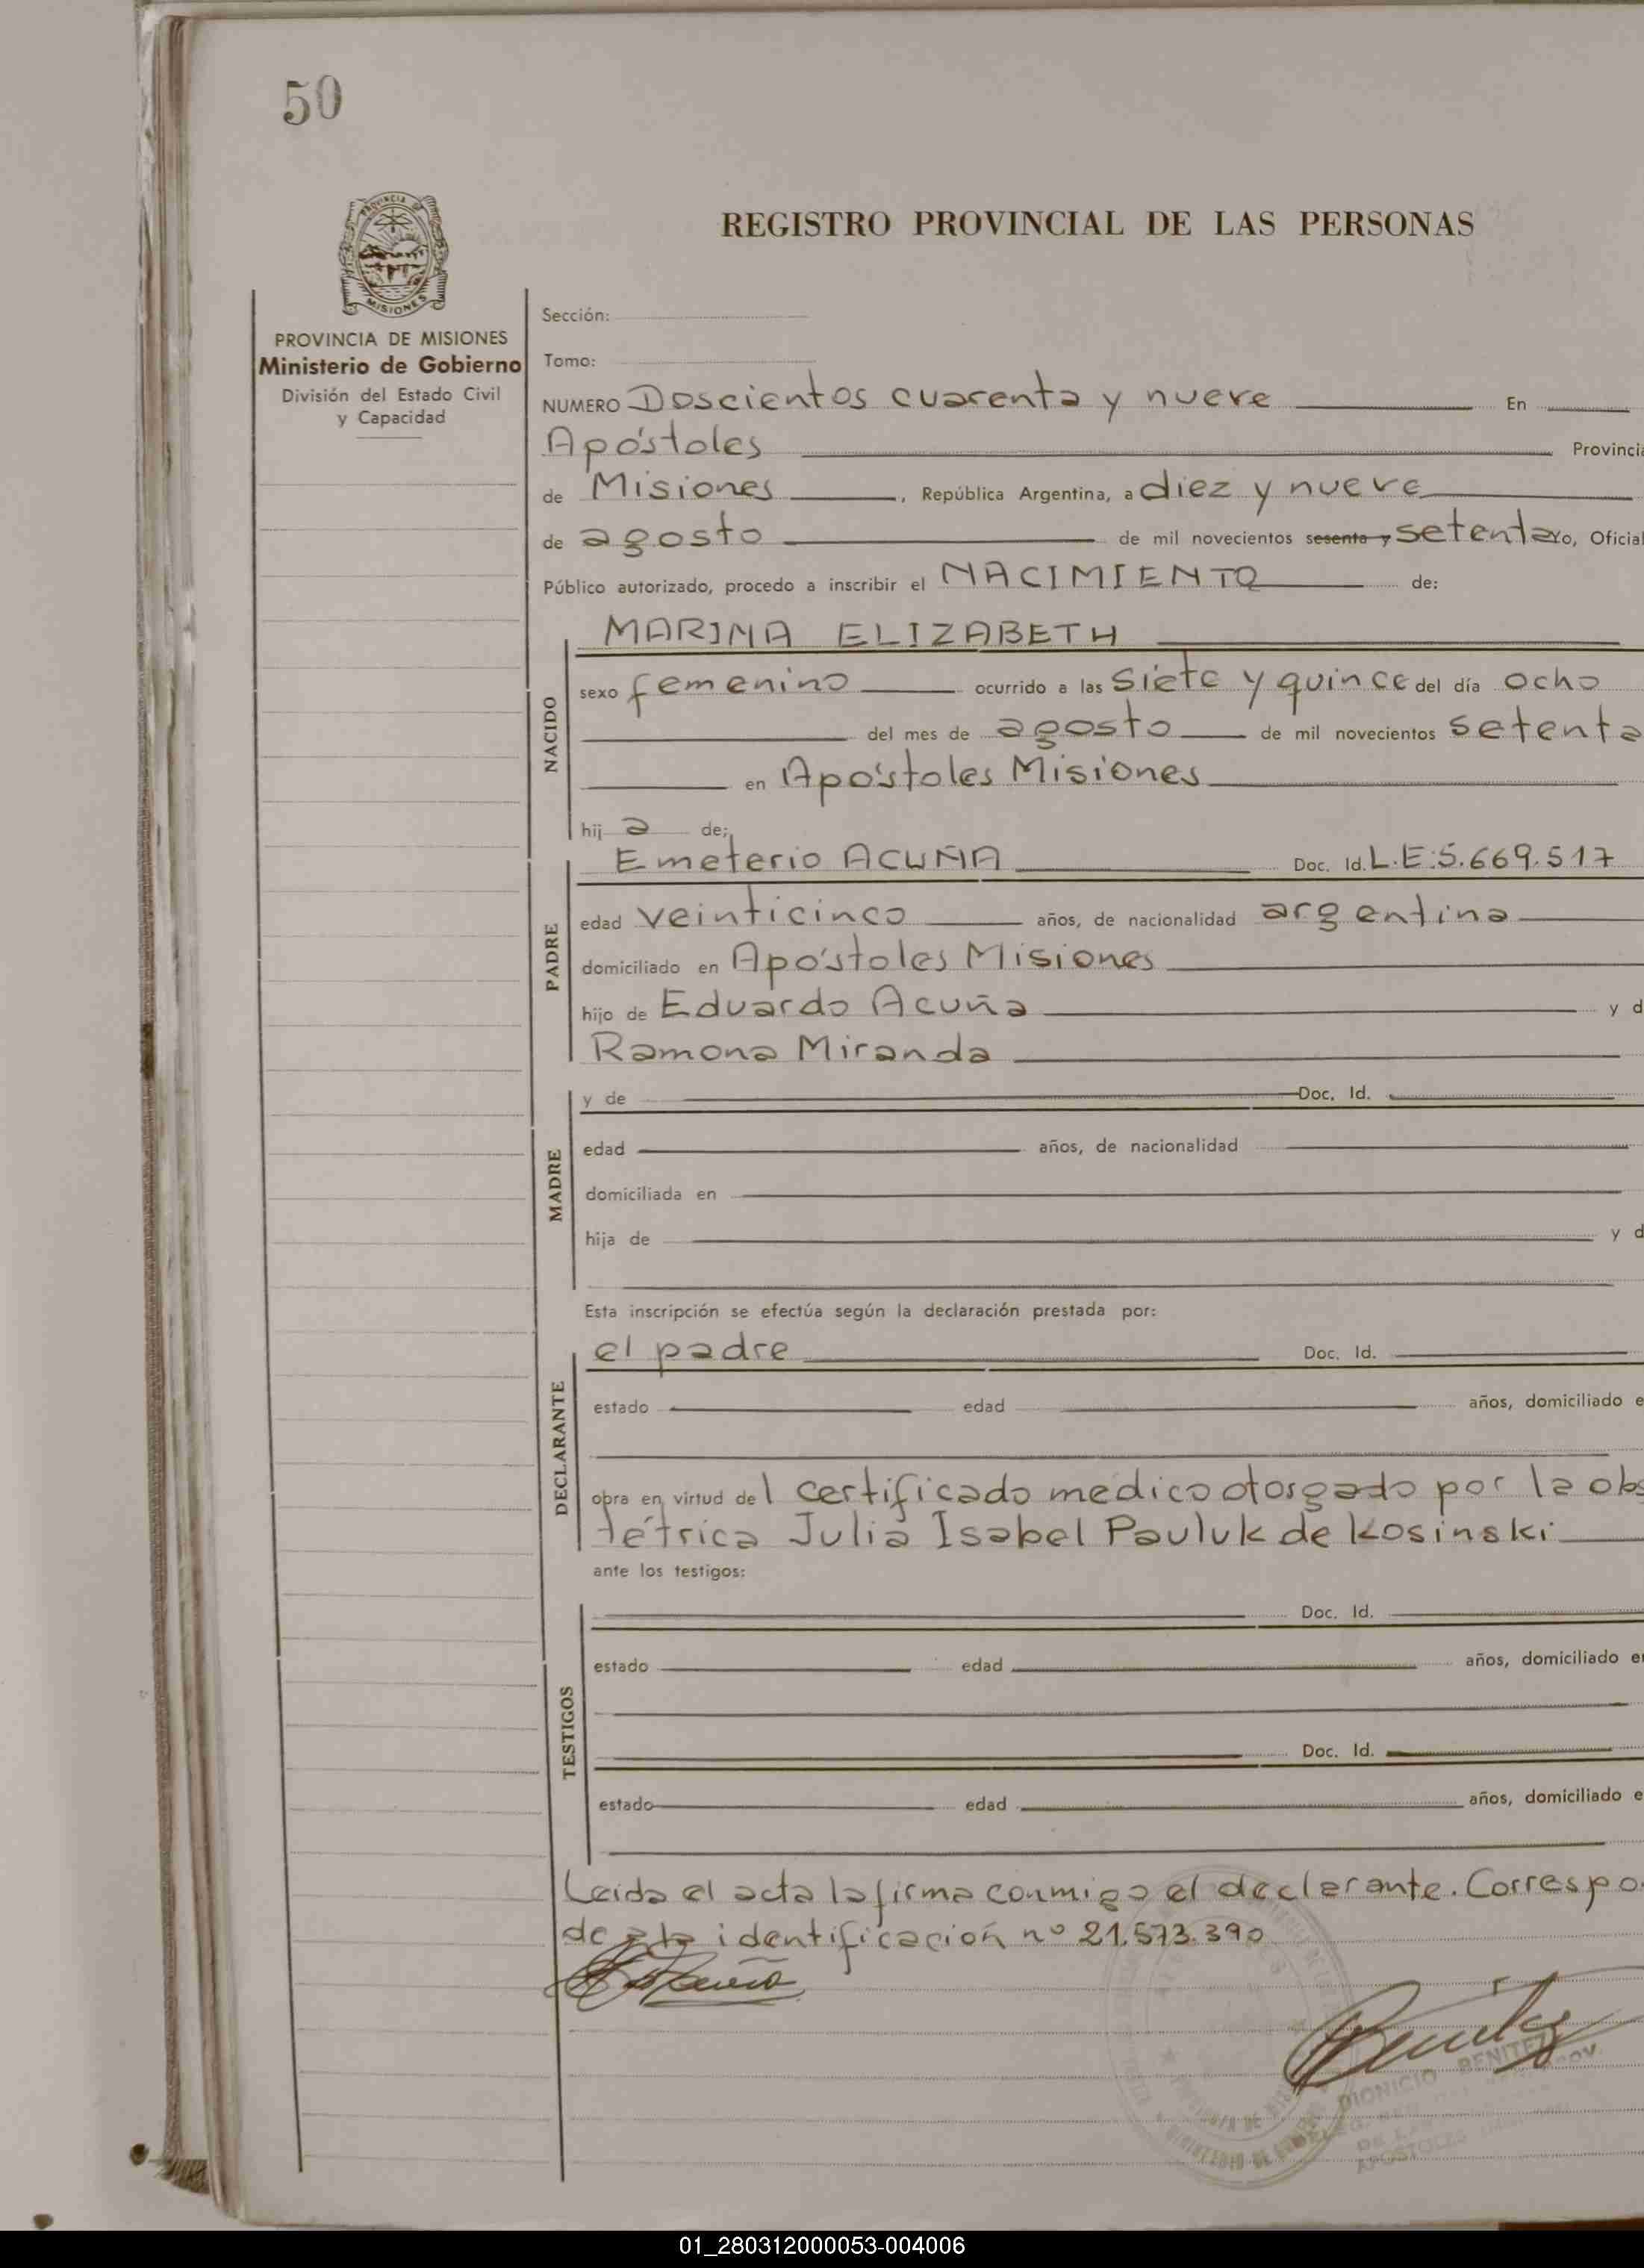 50
PROVINCIA DE
MISIONES
REGISTRO PROVINCIAL DE LAS PERSONAS
PROVINCIA DE MISIONES
Ministerio de Gobierno
División del Estado Civil
y Capacidad
Sección:
Tomo:
NUMERO Doscientos cuarenta y nueve En
Apóstoles Provinci
de Misiones, República Argentina, a diez y nueve
de agosto de mil novecientos sesenta y setenta Yo, Oficial
Público autorizado, procedo a inscribir el NACIMIENTO de:
MARINA ELIZABETH
NACIDO
sexo femenino ocurrido a las siete y quince del día ocho
del mes de agosto de mil novecientos setenta
en Apóstoles Misiones
hij a de;
PADRE
Emeterio ACUÑA Doc. Id. L.E:5.669.517
edad veinticinco años, de nacionalidad argentina
domiciliado en Apóstoles Misiones
hijo de Eduardo Acuña y d
Ramona Miranda
MADRE
y de Doc. Id.
edad años, de nacionalidad
domiciliada en
hija de y d
Esta inscripción se efectúa según la declaración prestada por:
DECLARANTE
el padre Doc. Id.
estado edad años, domiciliado e
obra en virtud de l certificado medico otorgado por la obs
tétrica Julia Isabel Pauluk de Kosinski
ante los testigos:
TESTIGOS
Doc. Id.
estado edad años, domiciliado e
Doc. Id.
estado edad años, domiciliado e
Leida el acta la firma conmigo el declarante. Correspo
de identificación nº 21.573.390
Benitez
DIONICIO BENITEZ
APOSTOLES
01_280312000053-004006